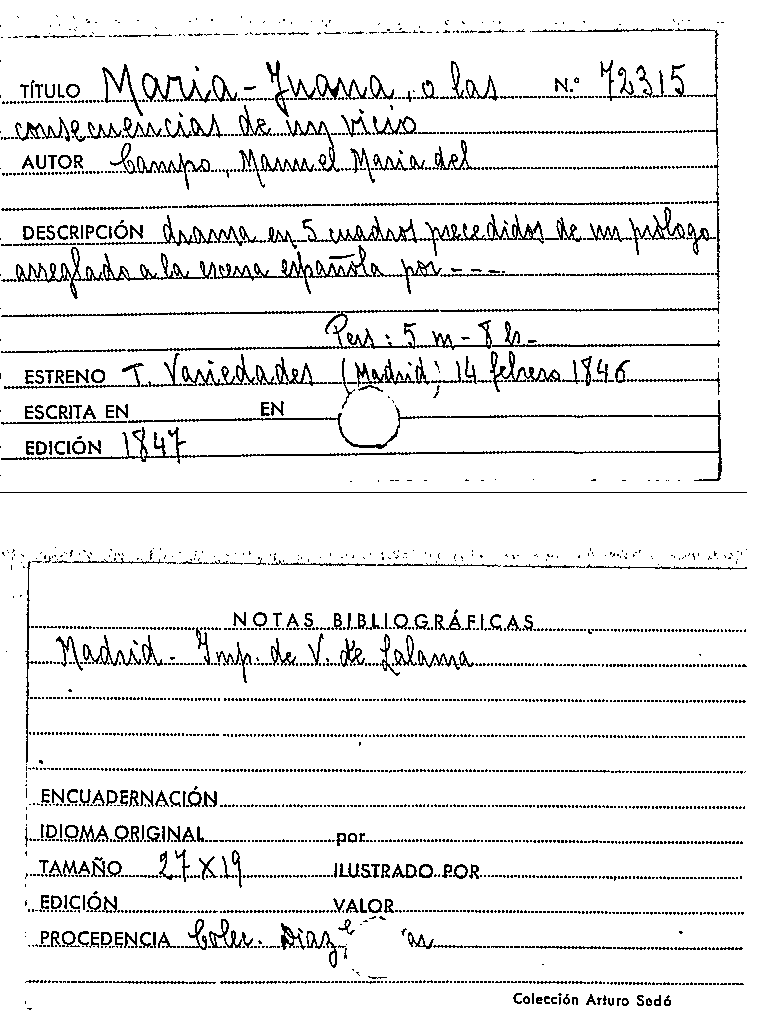 TÍTULO Maria-Juana, o las N.º 72315
consecuencias de un vicio
AUTOR Campo, Manuel Maria del
DESCRIPCIÓN drama en 5 cuadros precedidos de un prólogo
arreglado a la escena española por - - -
Pers: 5 m - 8 h -
ESTRENO T. Variedades (Madrid) 14 febrero 1846
ESCRITA EN EN
EDICIÓN 1847
NOTAS BIBLIOGRÁFICAS
Madrid - Imp. de V. de Lalama
ENCUADERNACIÓN
IDIOMA ORIGINAL por
TAMAÑO 27 X 19 ILUSTRADO POR
EDICIÓN VALOR
PROCEDENCIA Colec. Diaz
Colección Arturo Sedó